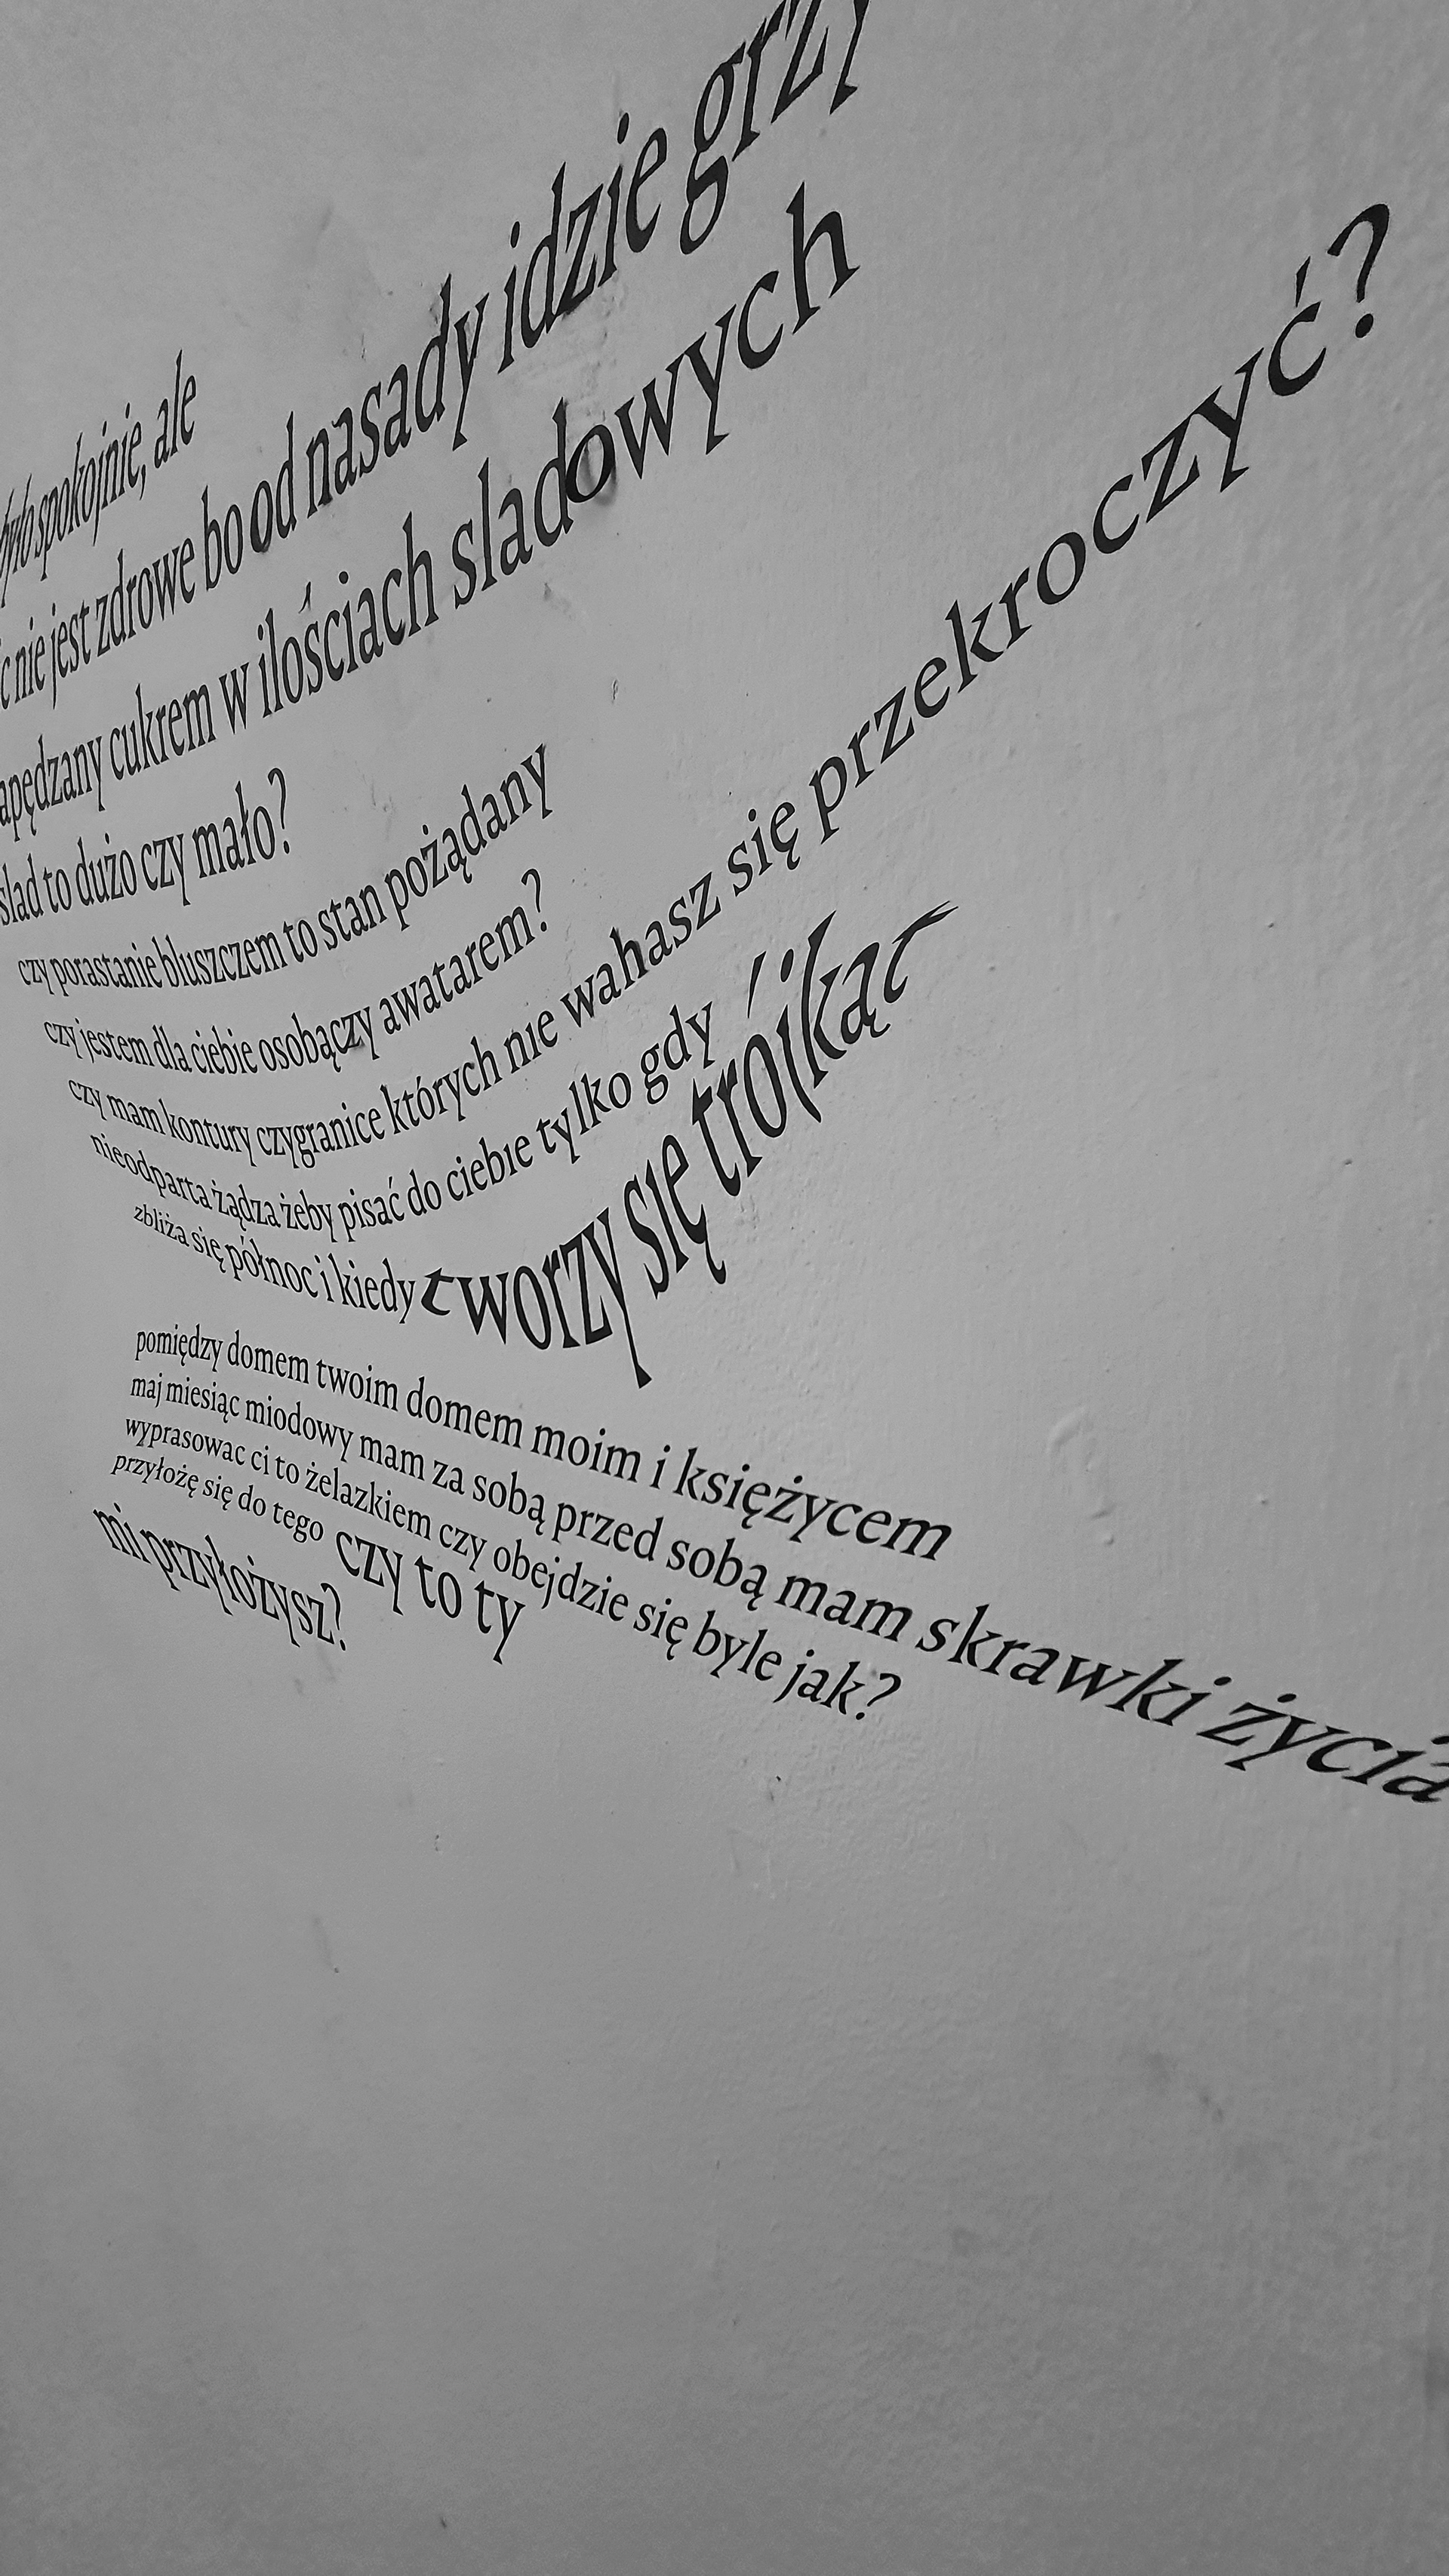 było spokojnie, ale
nie jest zdrowe bo od nasady idzie grzy
apędzany cukrem w ilościach sladowych
ślad to dużo czy mało?
czy porastanie bluszczem to stan pożądany
czy jestem dla ciebie osobą czy awatarem?
czy mam kontury czy granice których nie wahasz się przekroczyć?
nieodparta żądza żeby pisać do ciebie tylko gdy
zbliża się północ i kiedy tworzy się trójkąt
pomiędzy domem twoim domem moim i księżycem
maj miesiąc miodowy mam za sobą przed sobą mam skrawki życia
wyprasowac ci to żelazkiem czy obejdzie się byle jak?
przyłożę się do tego czy to ty
mi przyłożysz?